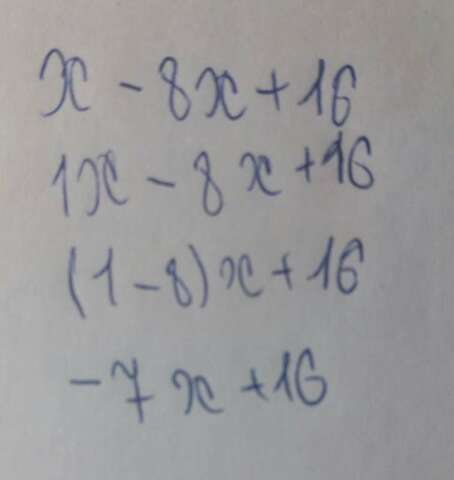 x - 8x + 16
1x - 8x + 16
(1 - 8)x + 16
- 7x + 16